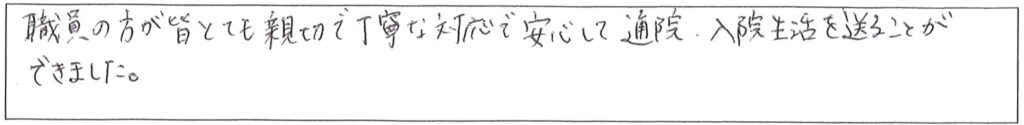 職員の方が皆とても親切で丁寧な対応で安心して通院、入院生活を送ることが
できました。